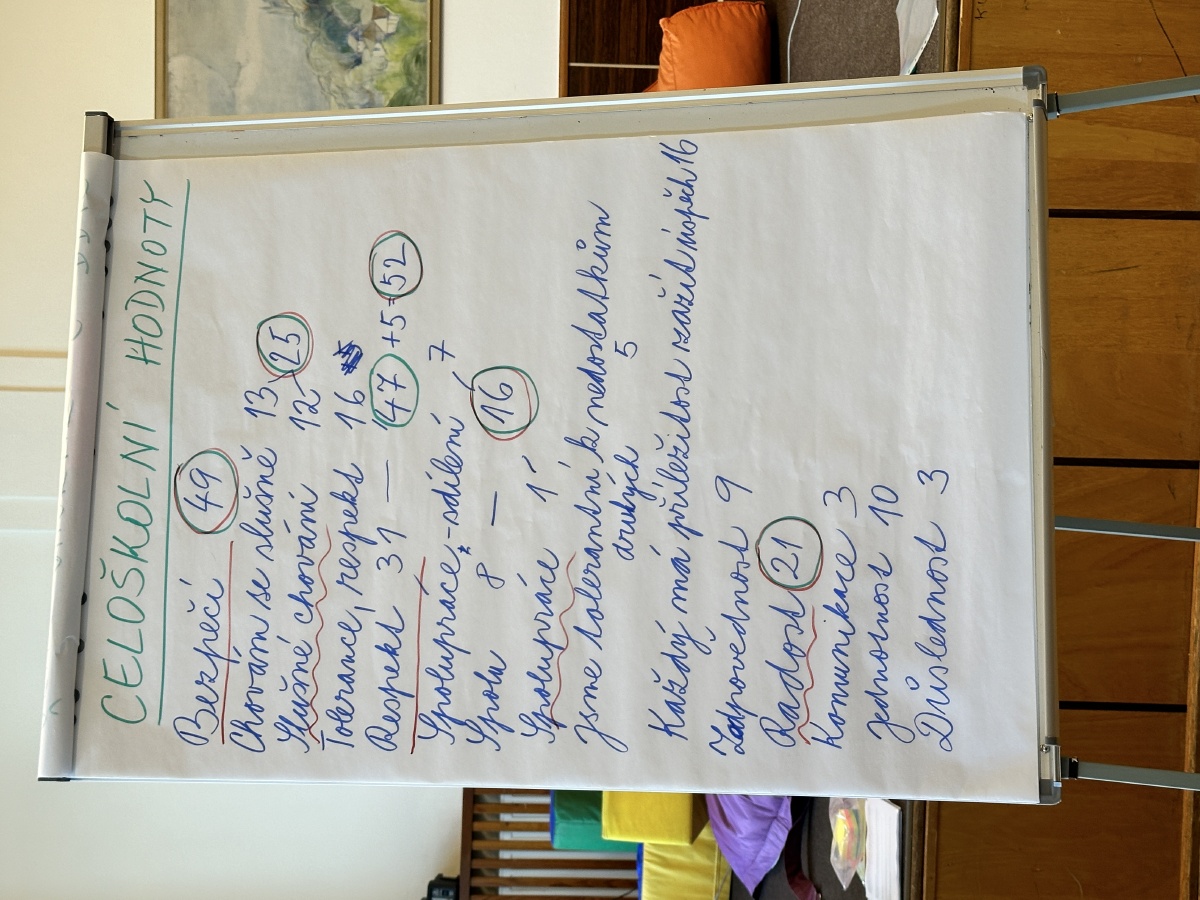 CELOŠKOLNÍ HODNOTY
Bezpečí 49
Chovám se slušně 13
Slušné chování 12 25
Tolerance, respekt 16
Respekt 31 — 47 +5=52
Spolupráce, -sdílení 7
Spolu 8 — 16
Spolupráce 1
Jsme tolerantní k nedostatkům
druhých 5
Každý má příležitost zažít úspěch 16
Zodpovědnost 9
Radost 21
Komunikace 3
Jednotnost 10
Důslednost 3